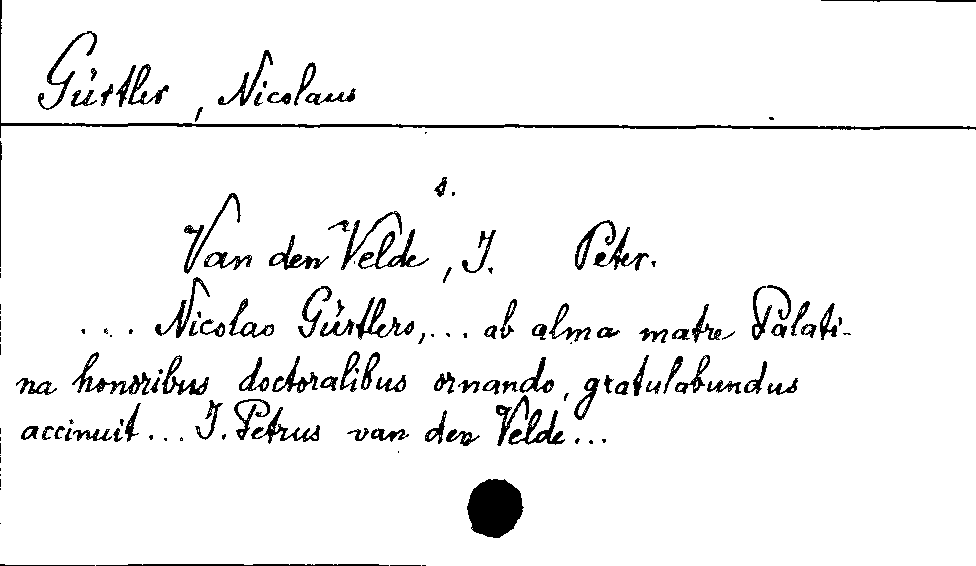 Gürtler, Nicolaus
s.
Van den Velde, J. Peter.
... Nicolao Gürtlero,... ab alma matre Palati-
na honoribus doctoralibus ornando, gratulabundus
accinuit... J. Petrus van den Velde...